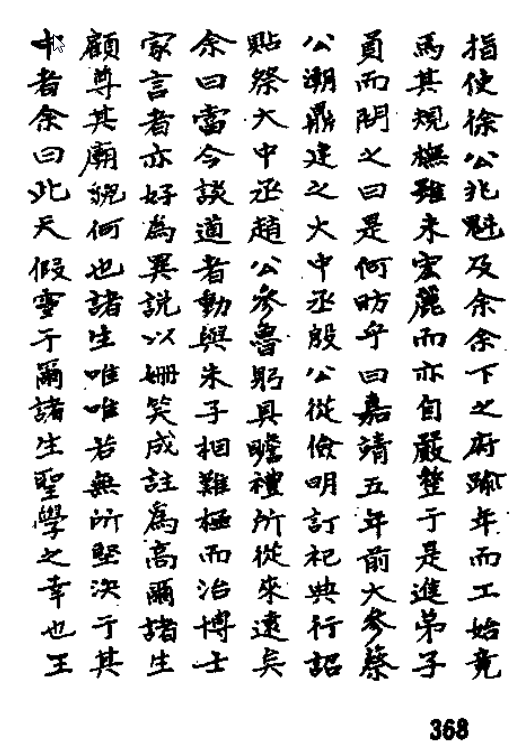 指使徐公兆魁及余余下之府踰年而工始竟
焉其規橅雖未宏麗而亦自嚴整于是進弟子
員而問之曰是何昉乎曰嘉靖五年前大參蔡
公潮鼎建之大中丞殷公從儉明訂祀典行詔
貼祭大中丞趙公參魯躬具瞻禮所從來遠矣
余曰當今談道者動與朱子相難極而治博士
家言者亦好為異說以姍笑成註為高爾諸生
顧尊其廟貌何也諸生唯唯若無所堅決于其
中者余曰此天假靈于爾諸生聖學之幸也王
368